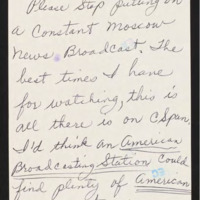 Please Stop putting on
a Constant Moscow
News Broadcast. The
best times I have
for watching, this is
all there is on CSpan.
I'd think an American
Broadcasting Station could
find plenty of American